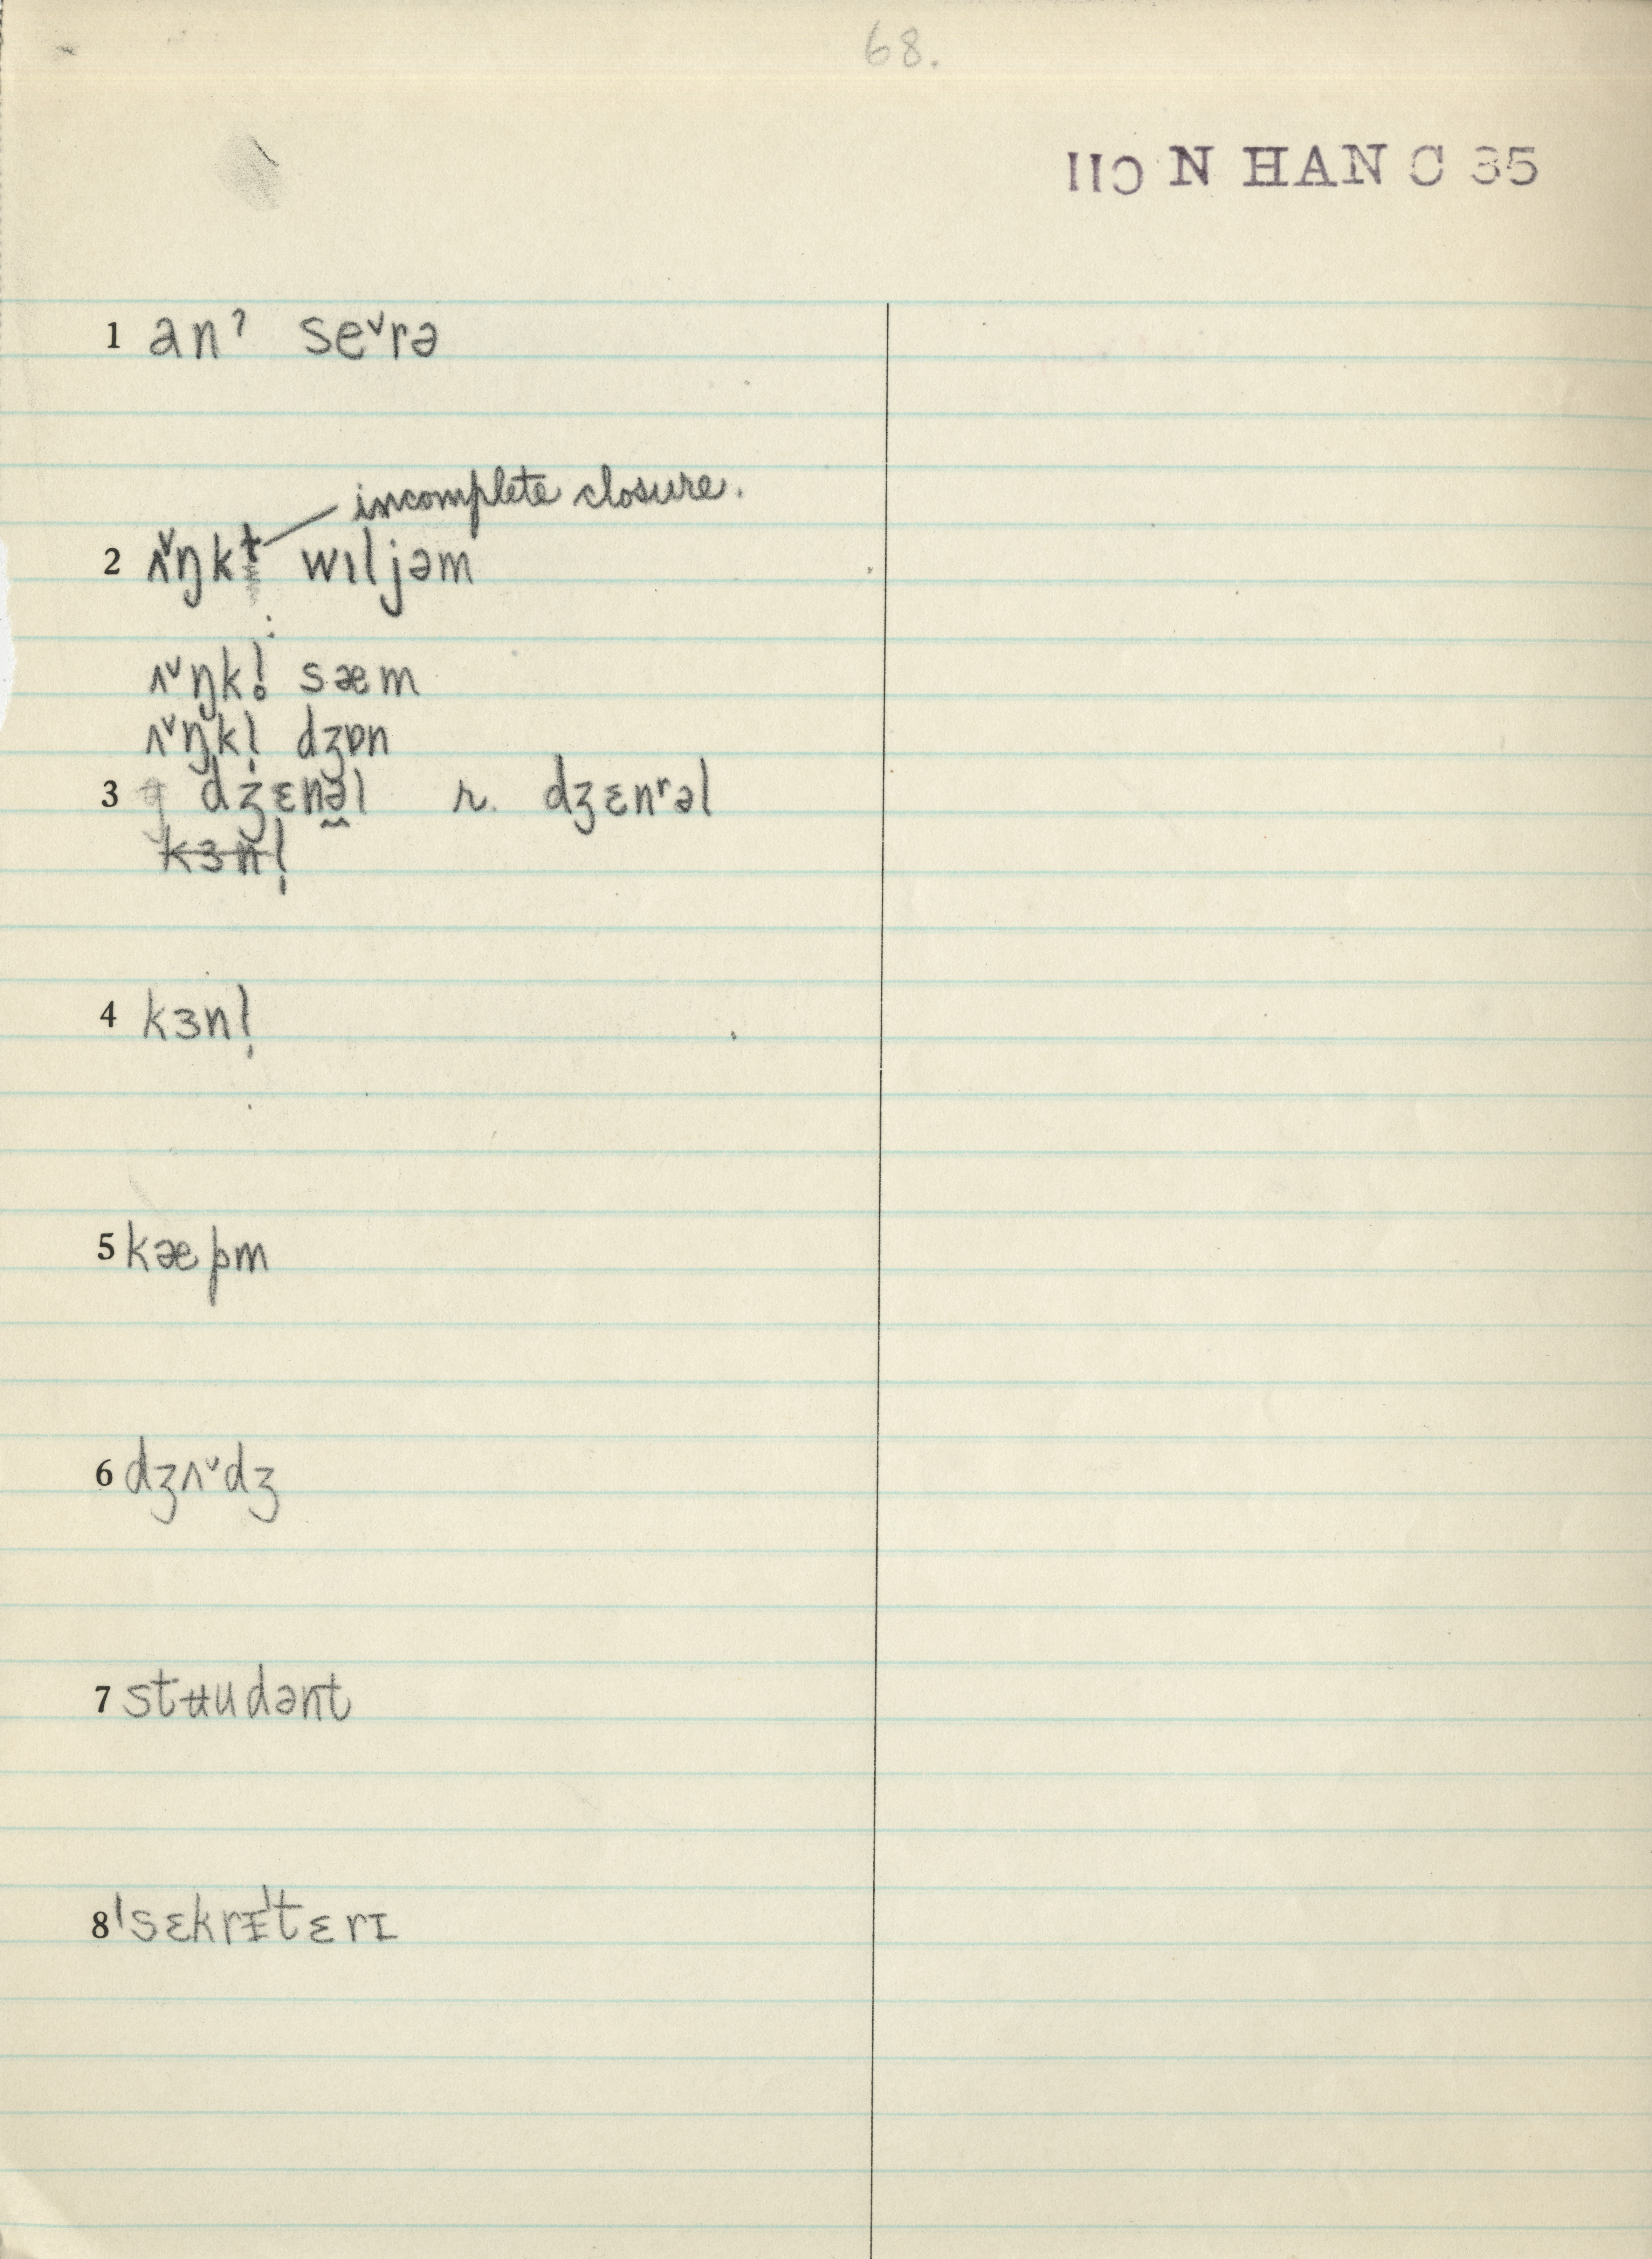 68.
N HAN C 35
1 anˀ seˇrə
incomplete closure.
2 ʌˇŋkƚ wɪljəm
ʌˇŋkl̥ sæm
ʌˇŋkl̩ dʒɒn
3 dʒɛnə̰l r. dʒɛnʳəl
kɜnl̩
4 kɜnl̩
5 kæpm
6 dʒʌˇdʒ
7 stʉudənt
8 ˈsɛkrɪˈtɛrɪ